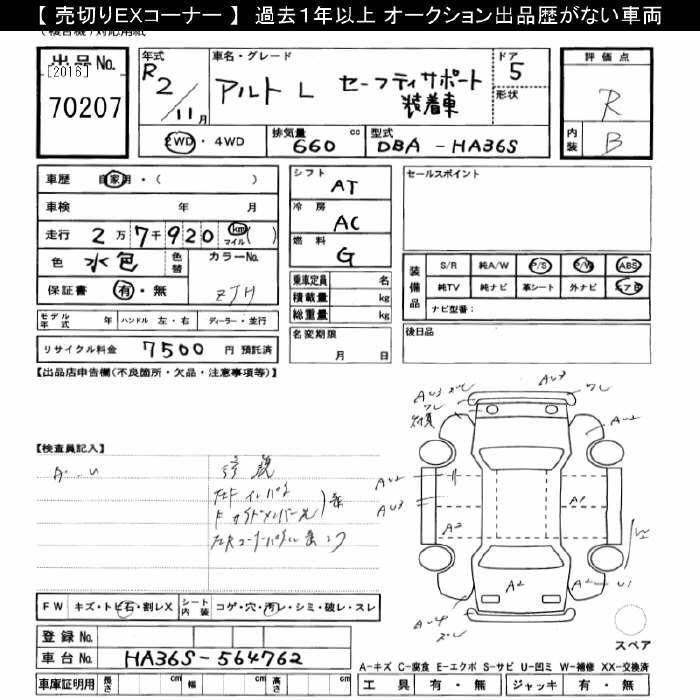 【 売切りEXコーナー 】 過去１年以上 オークション出品歴がない車両
出品No. [2016] 70207
年式 R2/11月
車名・グレード アルト L セーフティサポート装着車
ドア 5
形状
評価点 R
内装 B
2WD・4WD
排気量 660 cc
型式 DBA-HA36S
車歴 自家用・( )
車検 年 月
走行 2万7千920 km マイル( )
色 水色 色替 カラーNo. ZJH
保証書 有・無
モデル年式 年 ハンドル 左・右 ディーラー・並行
リサイクル料金 7500 円 預託済
シフト AT
冷房 AC
燃料 G
乗車定員 名
積載量 kg
総重量 kg
名変期限 月 日
セールスポイント
装備品 S/R 純A/W P/S P/W ABS
純TV 純ナビ 革シート 外ナビ エアB
ナビ型番：
後日品
【出品店申告欄(不良箇所・欠品・注意事項等)】
【検査員記入】
A・U
AU3
A2
A1
A2
U1
FW キズ・トビ石・割レX シート内装 コゲ・穴・汚レ・シミ・破レ・スレ
登録No.
車台No. HA36S-564762
スペア
A-キズ C-腐食 E-エクボ S-サビ U-凹ミ W-補修 XX-交換済
車庫証明用 長さ cm 幅 cm 高さ cm
工具 有・無 ジャッキ 有・無